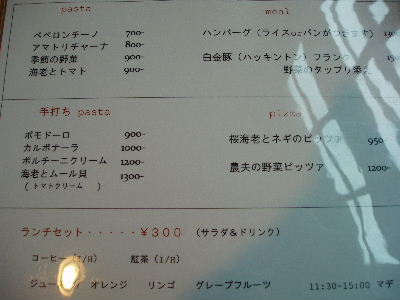 pasta
ペペロンチーノ 700-
アマトリチャーナ 800-
季節の野菜 900-
海老とトマト 900-
meal
ハンバーグ (ライスorパンがつきます)
白金豚 (ハッキントン) フランク
野菜のタップリ添え
手打ち pasta
ポモドーロ 900-
カルボナーラ 1000-
ポルチーニクリーム 1200-
海老とムール貝 1300-
( トマトクリーム )
pizza
桜海老とネギのピッツァ 950-
農夫の野菜ピッツァ 1200-
ランチセット・・・・・¥300 (サラダ&ドリンク)
コーヒー (I/H) 紅茶 (I/H)
オレンジ リンゴ グレープフルーツ 11:30-15:00 マデ